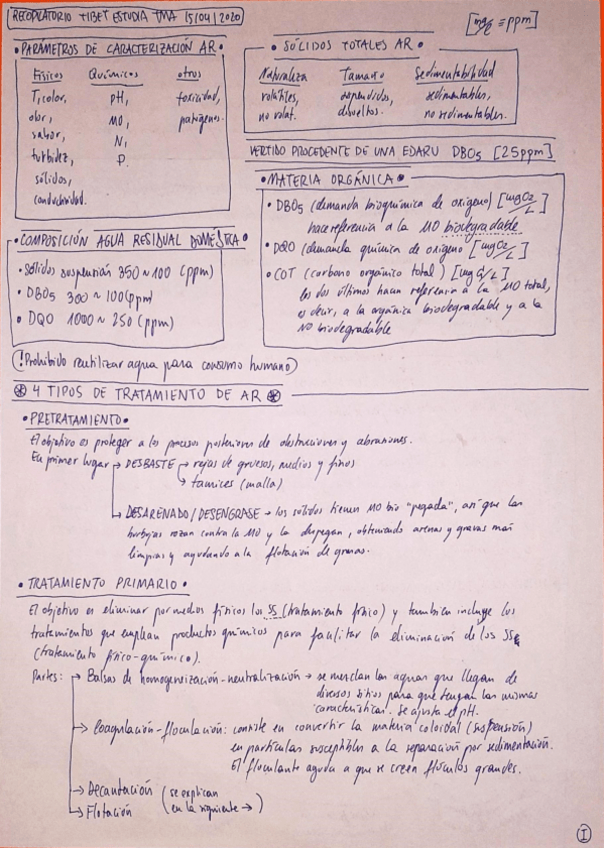 RECOPILATORIO TIBET ESTUDIA TMA 15/04/2020
[mg/L ≡ ppm]
• PARÁMETROS DE CARACTERIZACIÓN AR •
Físicos Químicos otros
T, color, pH, toxicidad,
olor, MO, patógenos.
sabor, N,
turbidez, P
sólidos,
conductividad.
• SÓLIDOS TOTALES AR •
Naturaleza Tamaño Sedimentabilidad
volátiles, suspendidos, sedimentables,
no volat. disueltos. no sedimentables.
VERTIDO PROCEDENTE DE UNA EDARU DBO5 [25ppm]
• MATERIA ORGÁNICA •
• DBO5 (demanda bioquímica de oxígeno) [mgO2/L]
hace referencia a la MO biodegradable
• DQO (demanda química de oxígeno [mgO2/L]
• COT (carbono orgánico total) [mgC/L]
los dos últimos hacen referencia a la MO total,
es decir, a la orgánica biodegradable y a la
NO biodegradable
• COMPOSICIÓN AGUA RESIDUAL DOMÉSTICA •
• Sólidos suspensión 350 ~ 100 (ppm)
• DBO5 300 ~ 100 (ppm)
• DQO 1000 ~ 250 (ppm)
(! Prohibido reutilizar agua para consumo humano)
⊛ 4 TIPOS DE TRATAMIENTO DE AR ⊛
• PRETRATAMIENTO •
El objetivo es proteger a los procesos posteriores de obstrucciones y abrasiones.
En primer lugar → DESBASTE → rejas de gruesos, medios y finos
→ tamices (malla)
→ DESARENADO/DESENGRASE → los sólidos tienen MO bio "pegada", así que las
burbujas rozan contra la MO y la despegan, obteniendo arenas y gravas más
limpias y ayudando a la flotación de grasas.
• TRATAMIENTO PRIMARIO •
El objetivo es eliminar por medios físicos los SS (tratamiento físico) y también incluye los
tratamientos que emplean productos químicos para facilitar la eliminación de los SS
(tratamiento físico-químico).
Partes: → Balsas de homogeneización-neutralización → se mezclan las aguas que llegan de
diversos sitios para que tengan las mismas
características. Se ajusta el pH.
→ Coagulación-floculación: consiste en convertir la materia coloidal (suspensión)
en partículas susceptibles a la separación por sedimentación.
El floculante ayuda a que se creen flóculos grandes.
→ Decantación (se explican
→ Flotación en la siguiente →)
I